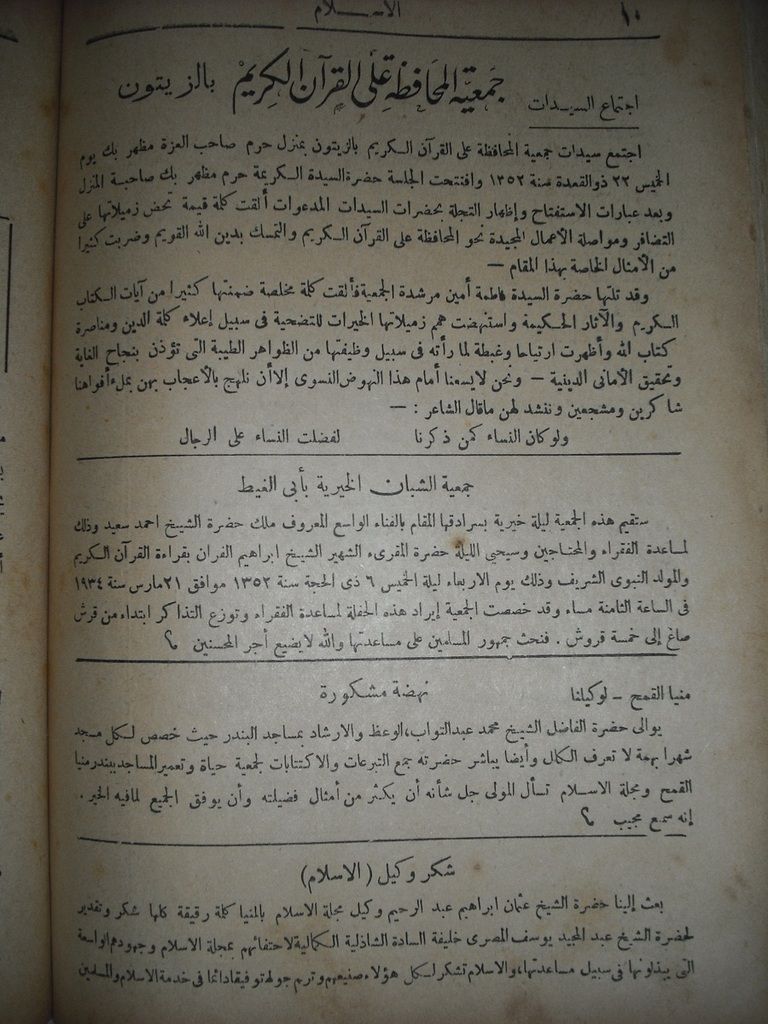 ١٠
الاســلام
اجتماع السيدات
جمعية المحافظة على القرآن الكريم بالزيتون
اجتمع سيدات جمعية المحافظة على القرآن الـكريم بالزيتون بمنزل حرم صاحب العزة مظهر بك يوم
الخميس ٢٢ ذوالقعدة سنة ١٣٥٢ وافتتحت الجلسة حضرة السيدة الـكريمة حرم مظهر بك صاحبـة المنزل
وبعد عبارات الاستفتاح وإظهار التجلة بحضرات السيدات المدعوات ألقت كلة قيمة تحض زميلاتها على
التضافر ومواصلة الأعمال المجيدة نحو المحافظة على القرآن الـكريم والتمسك بدين الله القويم وضربت كثيرا
من الأمثال الخاصة بهذا المقام —
وقد تلتها حضرة السيدة فاطمة أمين مرشدة الجمعية فألقت كلة مخلصة ضمنتها كثيرا من آيات الـكتاب
الـكريم والآثار الحـكيمة واستنهضت همم زميلاتها الخيرات للتضحية فى سبيل إعلاء كلة الدين ومناصرة
كتاب الله وأظهرت ارتياحا وغبطة لما رأته فى سبيل وظيفتها من الظواهر الطيبة التى تؤذن بنجاح الغاية
وتحقيق الأمانى الدينية — ونحن لايسعنا أمام هذا النهوض النسوى إلا أن نلهج بالأعجاب بهن بملء أفواهنا
شاكرين ومشجعين وننشد لهن ماقال الشاعر : —
ولوكان النساء كمن ذكرنا لفضلت النساء على الرجال
جمعية الشبان الخيرية بأبى الغيط
ستقيم هذه الجمعية ليلة خيرية بسرادقها المقام بالفناء الواسع المعروف ملك حضرة الشيخ احمد سعيد وذلك
لمساعدة الفقراء والمحتـاجين وسيحيى الليلة حضرة المقرىء الشهير الشيـخ ابراهيم الفران بقراءة القرآن الـكريم
والمولد النبوى الشريف وذلك يوم الاربعاء ليلة الخميس ٦ ذى الحجة سنة ١٣٥٢ موافق ٢١ مارس سنة ١٩٣٤
فى الساعة الثامنة مساء وقد خصصت الجمعية إيراد هذه الحفلة لمساعدة الفقراء وتوزع التذاكر ابتداء من قرش
صاغ إلى خمسة قروش . فنحث جمهور المسلمين على مساعدتها والله لايضيع أجر المحسنين
منيا القمح — لوكيلنا نهضة مشكورة
يوالى حضرة الفاضل الشيخ محمد عبدالتواب، الوعظ والارشاد بمساجد البندر حيث خصص لـكل مسجد
شهرا بهمة لا تعرف الكلل وأيضا يباشر حضرته جمع التبرعات والاكتتابات لجمعية حياة وتعمير المساجد ببندر منيا
القمح ومجلة الاســلام نسأل المولى جل شأنه أن يكثر من أمثال فضيلته وأن يوفق الجميع لمافيه الخير .
إنه سميع مجيب
شكر وكيل (الاسلام)
بعث إلينا حضرة الشيخ عثمان ابراهيم عبد الرحيم وكيل مجلة الاسلام بالمنيا كلة رقيقة كلها شكر وتقدير
لحضرة الشيخ عبد المجيد يوسف المصرى خليفة السادة الشاذلية الـكمالية لاحتفائهم بمجلة الاسلام وجهودهم الواسعة
التى يبذلونها فى سبيل مساعدتها، والاسلام تشكر لـكل هؤلاء صنيعهم وترجو لهم توفيقا دائما فى خدمة الاسلام والمسلمين